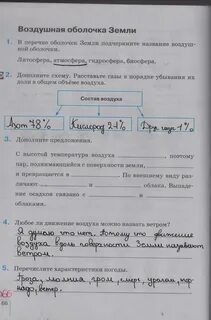 Воздушная оболочка Земли
1. В перечне оболочек Земли подчеркните название воздуш-
ной оболочки.
Литосфера, атмосфера, гидросфера, биосфера.
2. Дополните схему. Расставьте газы в порядке убывания их
доли в общем объёме воздуха.
Состав воздуха
Азот 78% Кислород 21% Др. 1%
3. Дополните предложения.
С высотой температура воздуха , поэтому
пар, поднимающийся с поверхности земли,
и превращается в . По внешнему виду раз-
личают и облака. Выпаде-
ние осадков связано с и
облаками.
4. Любое ли движение воздуха можно назвать ветром?
Я думаю что нет. Потому что движение
воздуха вдоль поверхности Земли называют
ветром.
5. Перечислите характеристики погоды.
Гроза, молния, гром, смерч, ураган, тор-
надо, ветер.
66